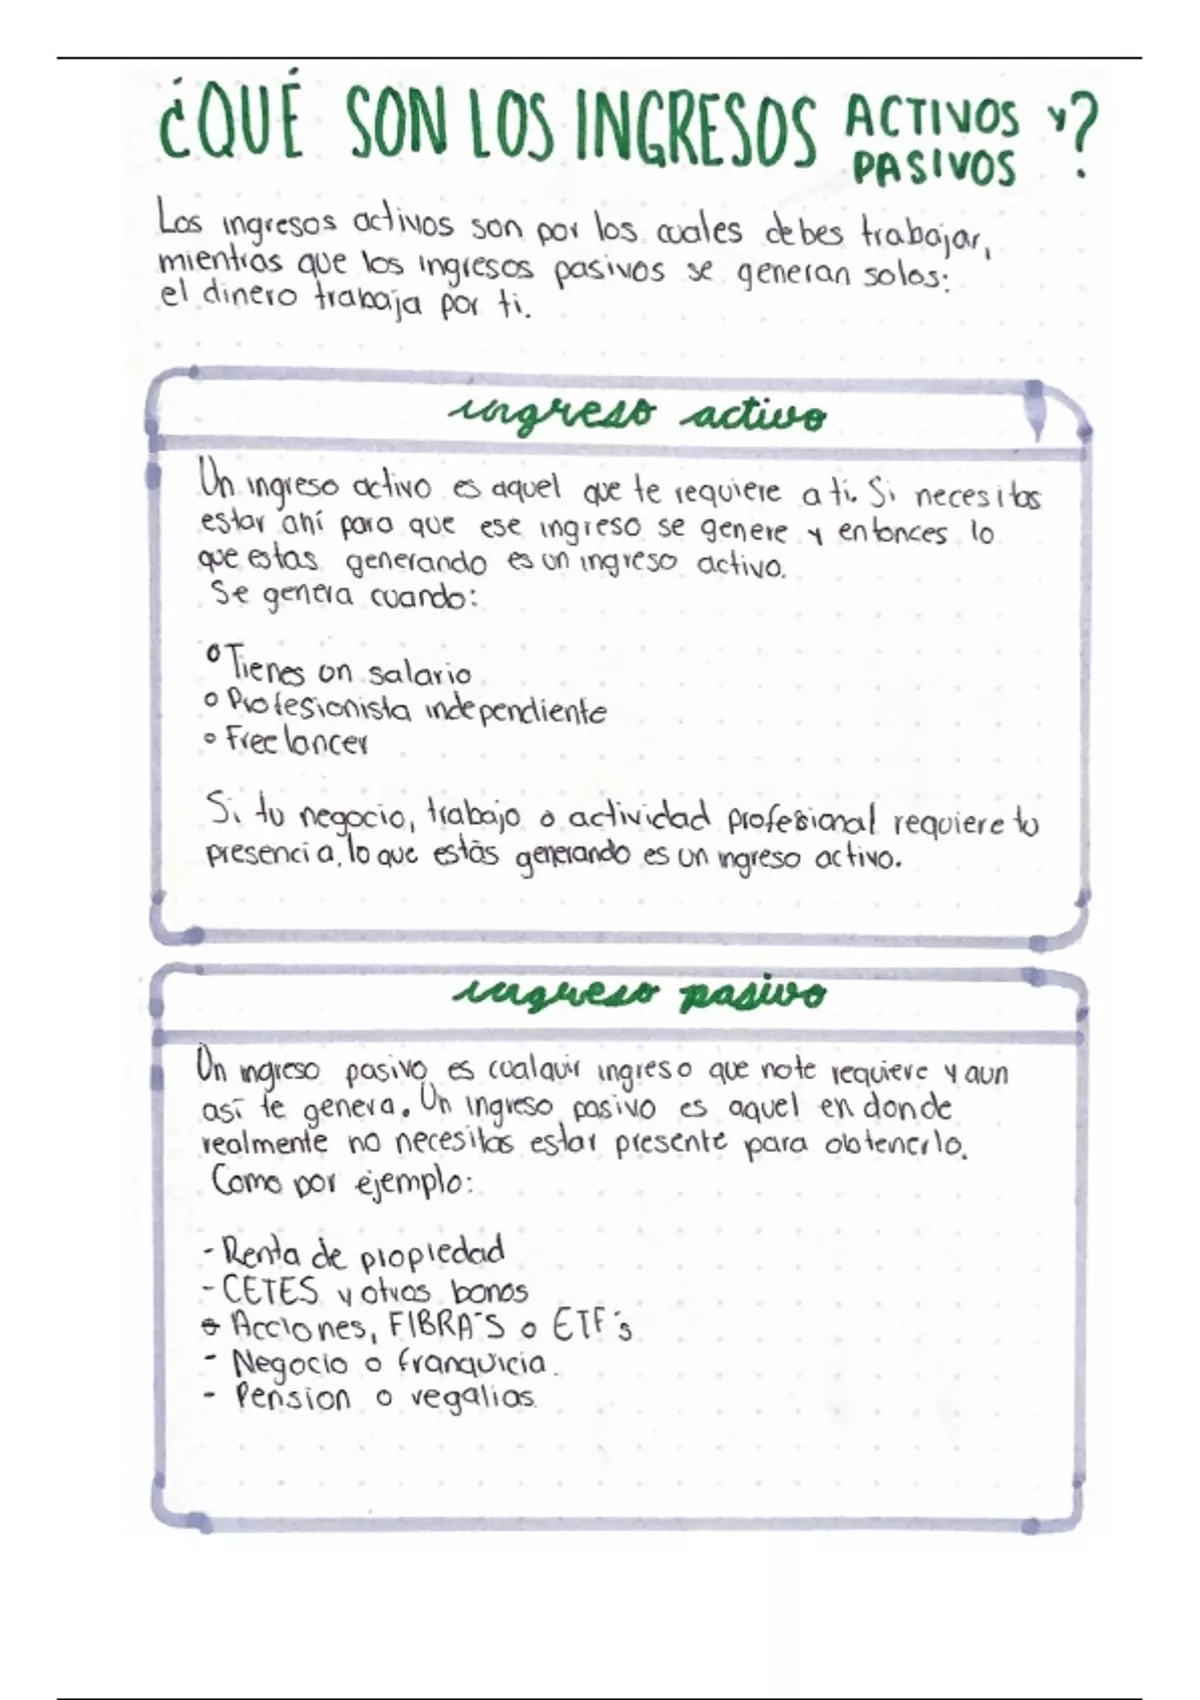 ¿QUÉ SON LOS INGRESOS ACTIVOS y?
PASIVOS
Los ingresos activos son por los cuales debes trabajar,
mientras que los ingresos pasivos se generan solos:
el dinero trabaja por ti.
ingreso activo
Un ingreso activo es aquel que te requiere a ti. Si necesitas
estar ahí para que ese ingreso se genere y entonces lo
que estas generando es un ingreso activo.
Se genera cuando:
° Tienes un salario
° Profesionista independiente
° Freelancer
Si tu negocio, trabajo o actividad profesional requiere tu
presencia, lo que estás generando es un ingreso activo.
ingreso pasivo
Un ingreso pasivo es cualquir ingreso que no te requiere y aun
así te genera. Un ingreso pasivo es aquel en donde
realmente no necesitas estar presente para obtenerlo.
Como por ejemplo:
- Renta de propiedad
- CETES y otros bonos
- Acciones, FIBRA'S o ETF's
- Negocio o franquicia.
- Pension o regalias.